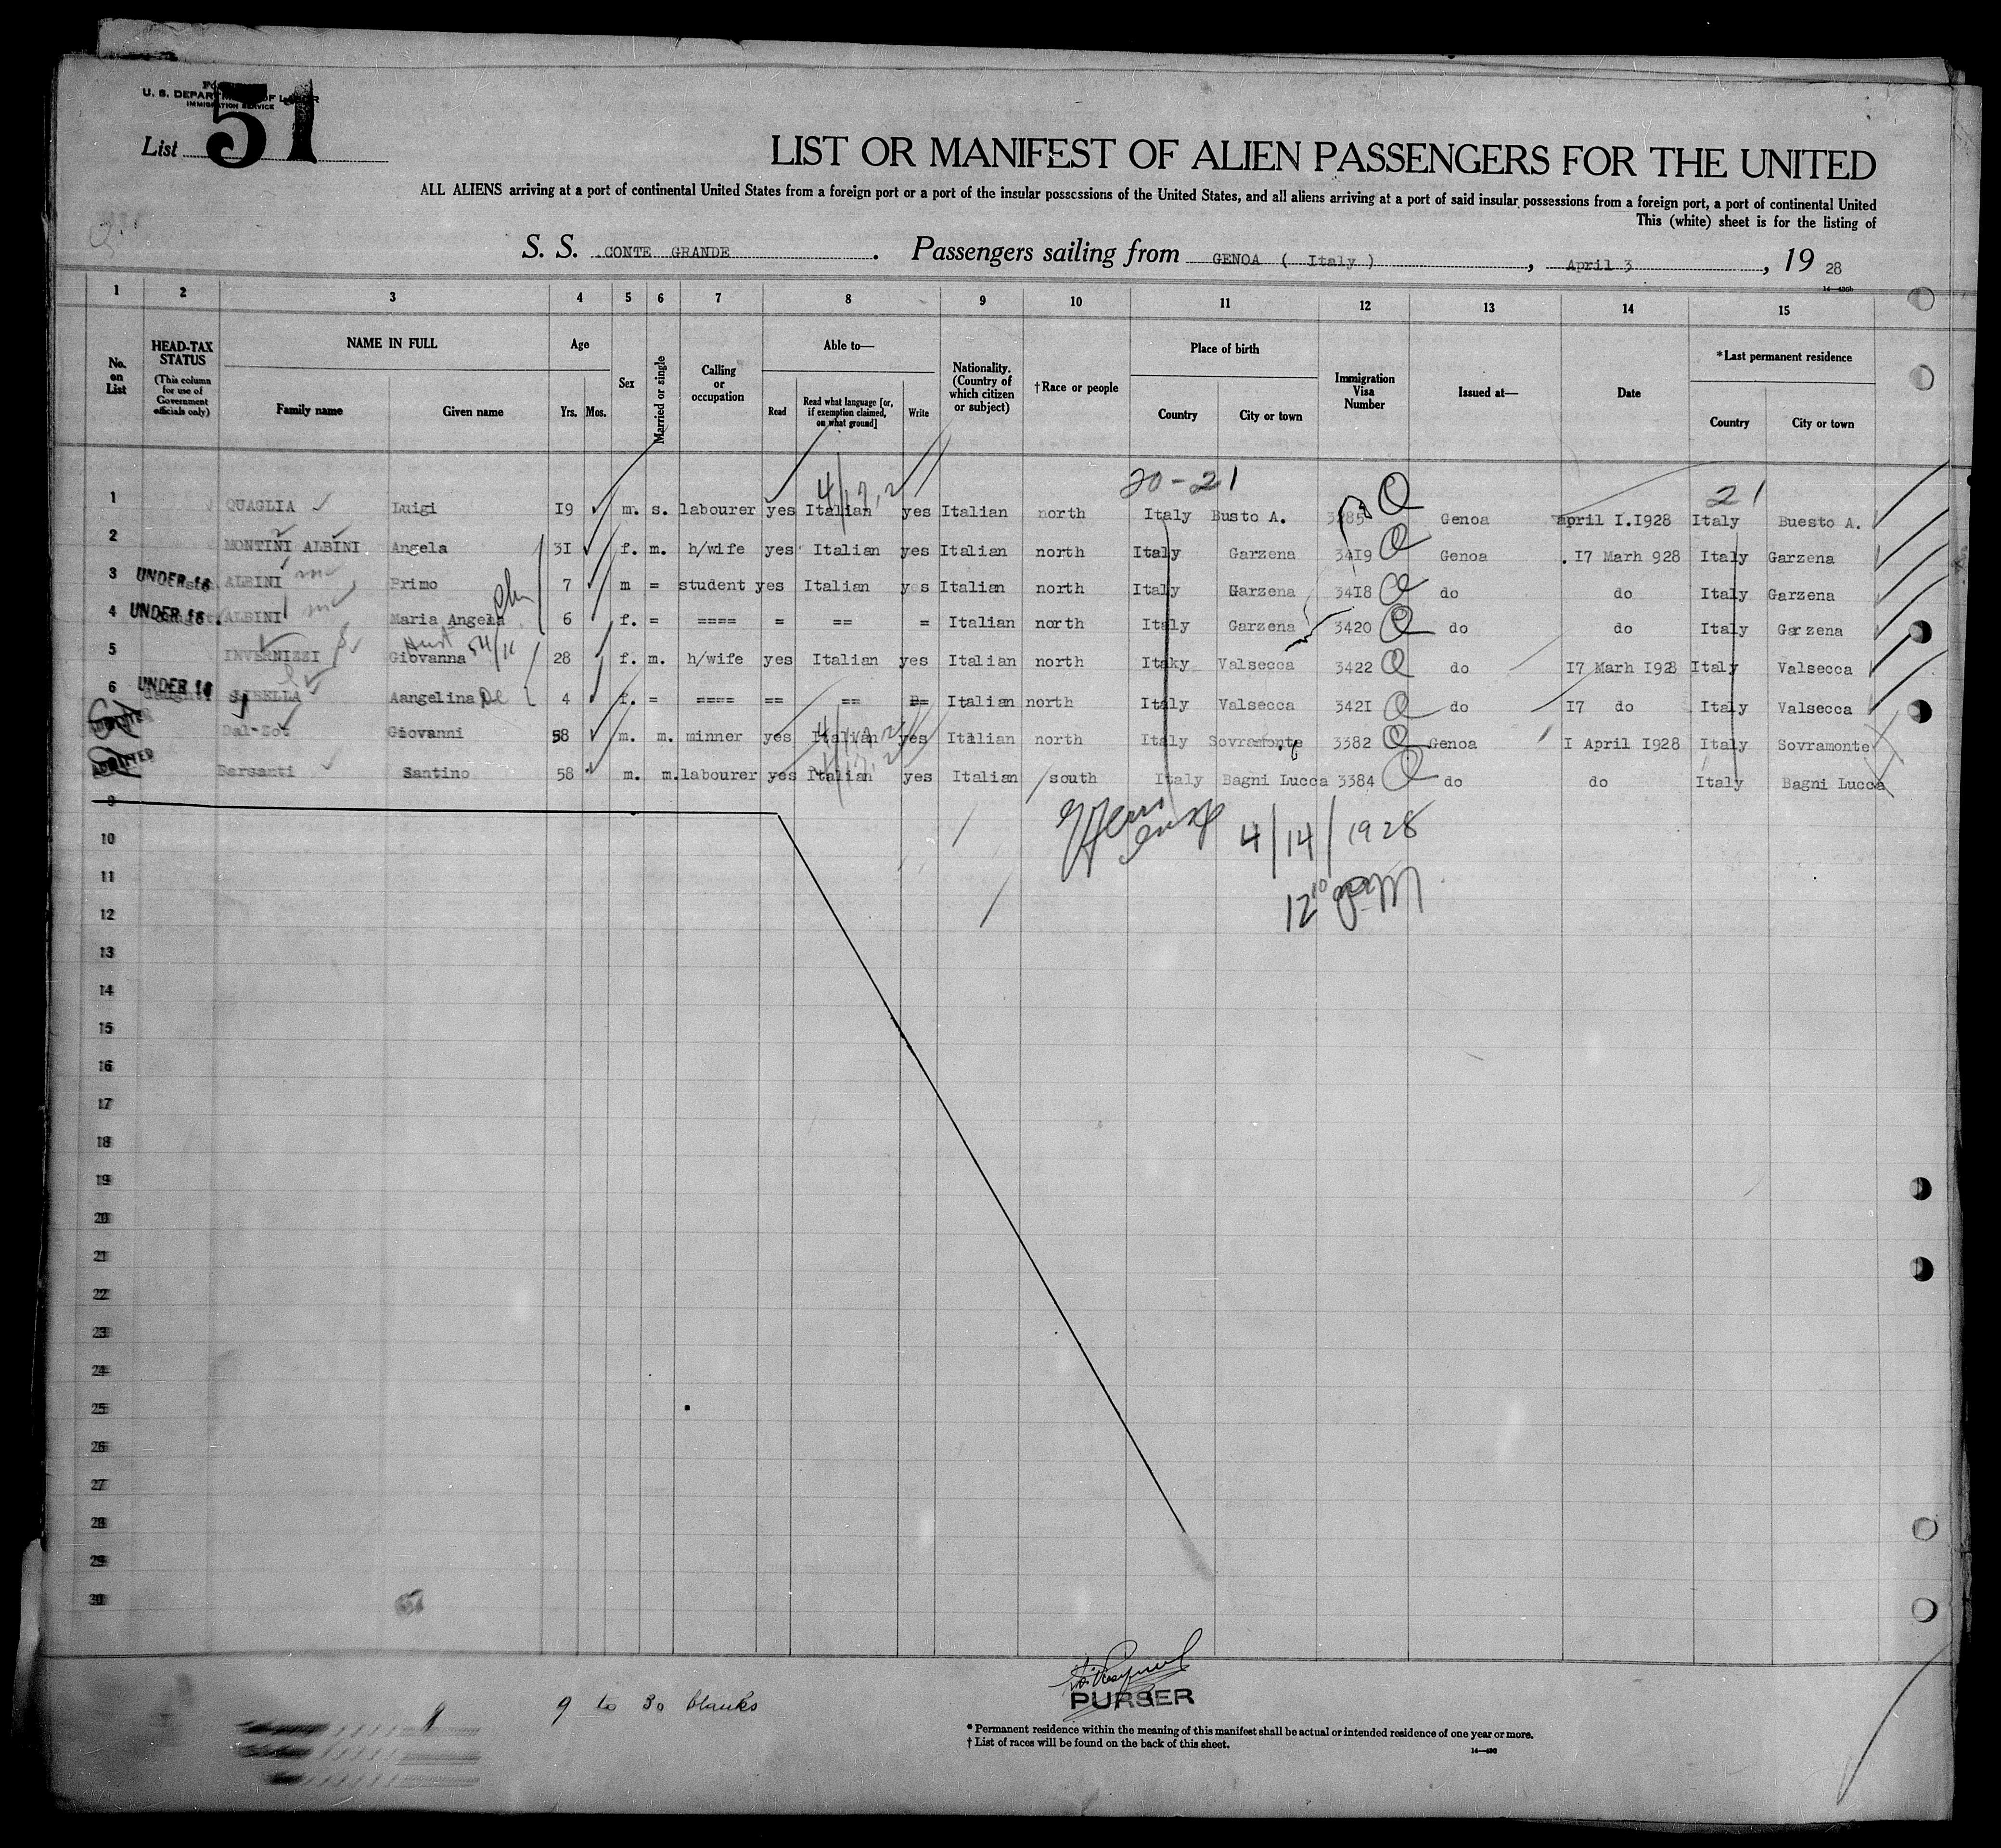 U. S. DEPARTMENT OF LABOR
IMMIGRATION SERVICE
List 51
LIST OR MANIFEST OF ALIEN PASSENGERS FOR THE UNITED
ALL ALIENS arriving at a port of continental United States from a foreign port or a port of the insular possessions of the United States, and all aliens arriving at a port of said insular possessions from a foreign port, a port of continental United
This (white) sheet is for the listing of
S. S. CONTE GRANDE. Passengers sailing from GENOA ( Italy ), April 3, 19 28
1 2 3 4 5 6 7 8 9 10 11 12 13 14 15
No. on List
HEAD-TAX STATUS (This column for use of Government officials only)
NAME IN FULL Family name Given name
Age Yrs. Mos.
Sex
Married or single
Calling or occupation
Able to— Read Read what language [or, if exemption claimed, on what ground] Write
Nationality. (Country of which citizen or subject)
†Race or people
Place of birth Country City or town
Immigration Visa Number
Issued at—
Date
*Last permanent residence Country City or town
4/12,2 20-21 21
1 QUAGLIA Luigi I9 m. s. labourer yes Italian yes Italian north Italy Busto A. 3285 Genoa april I.I928 Italy Buesto A.
2 MONTINI ALBINI Angela 3I f. m. h/wife yes Italian yes Italian north Italy Garzena 34I9 Genoa . I7 Marh 928 Italy Garzena
3 UNDER 16 ALBINI Primo 7 m = student yes Italian yes Italian north Italy Garzena 34I8 do do Italy Garzena
4 UNDER 16 ALBINI Maria Angela 6 f. = ==== = == = Italian north Italy Garzena 3420 do do Italy Garzena
5 INVERNIZZI Giovanna 28 f. m. h/wife yes Italian yes Italian north Itaky Valsecca 3422 do I7 Marh I928 Italy Valsecca
6 UNDER 16 Aangelina 4 f. = ==== == == == Italian north Italy Valsecca 342I do I7 do Italy Valsecca
ADMITTED Dal-Zot Giovanni 58 m. m. minner yes Italian yes Italian north Italy Sovramonte 3382 Genoa I April I928 Italy Sovramonte
ADMITTED Barsanti Santino 58 m. m. labourer yes Italian yes Italian south Italy Bagni Lucca 3384 do do Italy Bagni Lucca
9
4/14/1928
10
11
12 10 PM
12
13
14
15
16
17
18
19
20
21
22
23
24
25
26
27
28
29
30
PURSER
9 to 30 blanks
* Permanent residence within the meaning of this manifest shall be actual or intended residence of one year or more.
† List of races will be found on the back of this sheet.